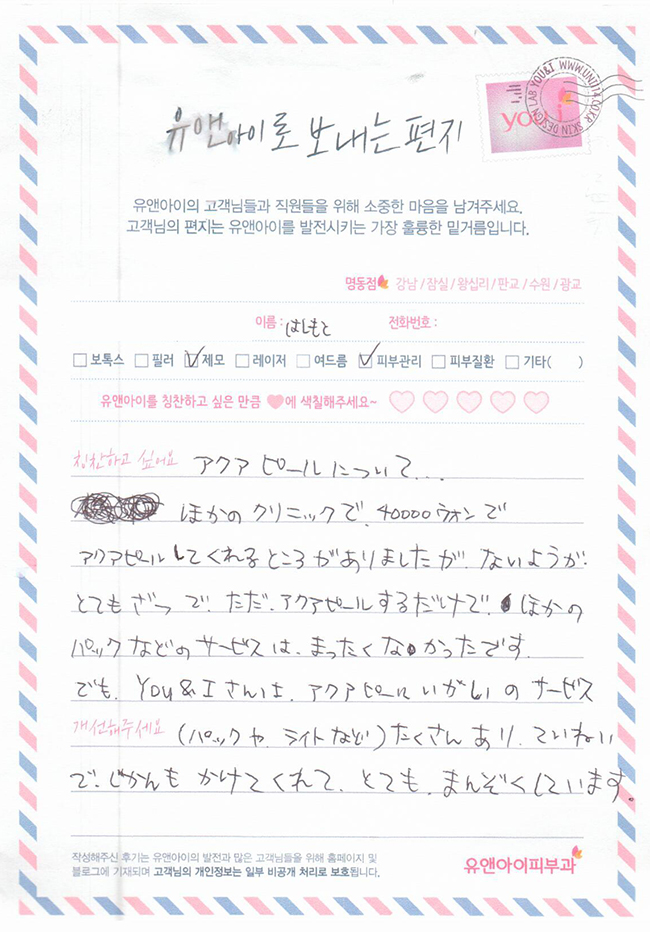 유앤아이로 보내는 편지
YOU&I WWW.UNI114.CO.KR SKIN DESIGN LAB
you i
유앤아이의 고객님들과 직원들을 위해 소중한 마음을 남겨주세요.
고객님의 편지는 유앤아이를 발전시키는 가장 훌륭한 밑거름입니다.
명동점 강남 / 잠실 / 왕십리 / 판교 / 수원 / 광교
이름 : はしもと 전화번호 :
보톡스 필러 제모 레이저 여드름 피부관리 피부질환 기타( )
유앤아이를 칭찬하고 싶은 만큼 ♥에 색칠해주세요~
칭찬하고 싶어요 アクアピールについて...
ほかのクリニックで、40000ウォンで
アクアピールしてくれるところがありましたが、ないようが
とてもざつで、ただ、アクアピールするだけで、ほかの
パックなどのサービスは、まったくなかったです。
でも、You&Iさんは、アクアピールいがいのサービス
개선해주세요 (パックや、ライトなど)たくさんあり、ていねい
で、じかんもかけてくれて、とても、まんぞくしています。
작성해주신 후기는 유앤아이의 발전과 많은 고객님들을 위해 홈페이지 및
블로그에 기재되며 고객님의 개인정보는 일부 비공개 처리로 보호됩니다.
유앤아이피부과